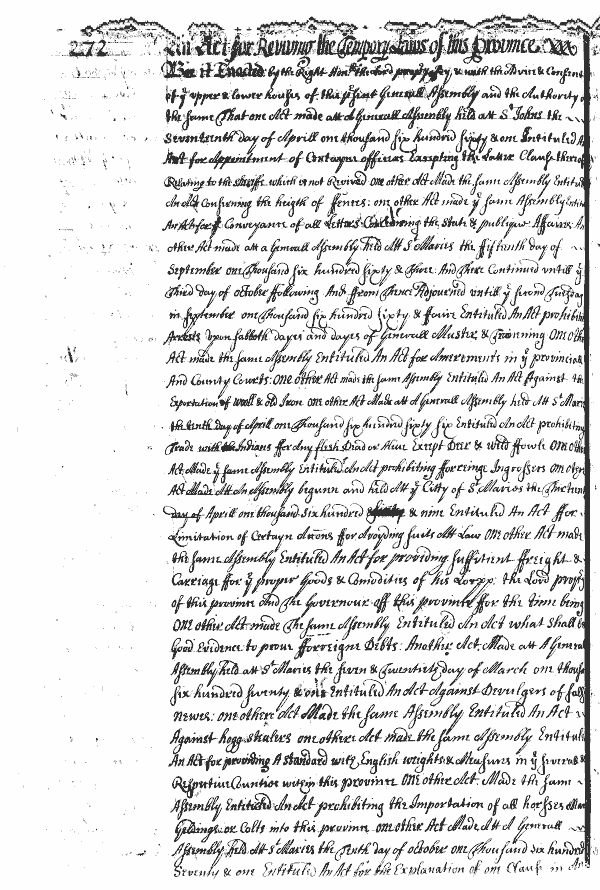 272
An Act for Reviving the Temporary Laws of this Province
Be it Enacted by the Right Honble the Lord propry, & with the Advice & Consent
of ye upper & lower houses of this psent Generall Assembly and the Authority of
the same That one Act made att A Generall Assembly held att St Johns the
Seventeenth day of Aprill one thousand six hundred sixty & one Intituled An
Act for Appointment of Certayne officers Excepting the latter Clause thereof
Relating to the sheriffe which is not Revived one other Act Made the same Assembly Entituled
An Act Confirming the heigth of ffences: one other Act made ye same Assembly Entituled
An Act for ye Conveyance of all Letters Concerning the State & publique Affaires An
other Act made att a Generall Assembly held Att St Maries the fifteenth day of
September one Thousand six hundred sixty & Three And There Continued untill ye
Third day of october ffollowing And ffrom Thence Adjourned untill ye second Tuesday
in September one Thousand six hundred sixty & foure Entituled An Act prohibiting
Arrests upon sabboth dayes and dayes of Generall Muster & Trainning One other
Act made the same Assembly Entituled An Act for Amerements in ye provinciall
And County Courts: One other Act made the same Assembly Entituled An Act Against the
Exportation of wooll & old Iron one other Act Made att A Generall Assembly held Att St Maries
the tenth day of April one Thousand six hundred sixty six Entituled An Act prohibiting
Trade with the Indians ffor Any flesh Dead or Alive Except Deer & wild ffowle One other
Act Made ye same Assembly Entituled An Act prohibiting fforeinge Ingrossers one other
Act Made Att An Assembly begunn and held Att ye Citty of St Maries the
day of Aprill one thousand six hundred sixty & nine Entituled An Act ffor
Limitation of Certayn Accons ffor Avoyding suits Att Law One other Act made
the same Assembly Entituled An Act for providing suffitient ffreight &
Carriage ffor ye proper Goods & Comodities of his Lordpp: the Lord propry
of this province And The Governour off this province ffor the time being
One other Act made The same Assembly Entituled An Act what shall be
Good Evidence to prove fforreigne Debts: Another Act Made att A Generall
Assembly held att St Maries the seven & Twentieth day of March one thousand
six hundred seventy & one Entituled An Act Against Devulgers of false
newes: one other Act Made the same Assembly Entituled An Act
Against hogg stealers one other Act made the same Assembly Entituled
An Act for providing A standard with English weights & Measures in ye severall
Respective Counties within this province One other Act Made the same
Assembly Entituled An Act prohibiting the Importation of all horses Mares
Geldings or Colts into this province one other Act Made Att A Generall
Assembly held Att St Maries the Tenth day of october one Thousand six hundred
Seventy & one Entituled An Act for the Explanation of one Clause in An